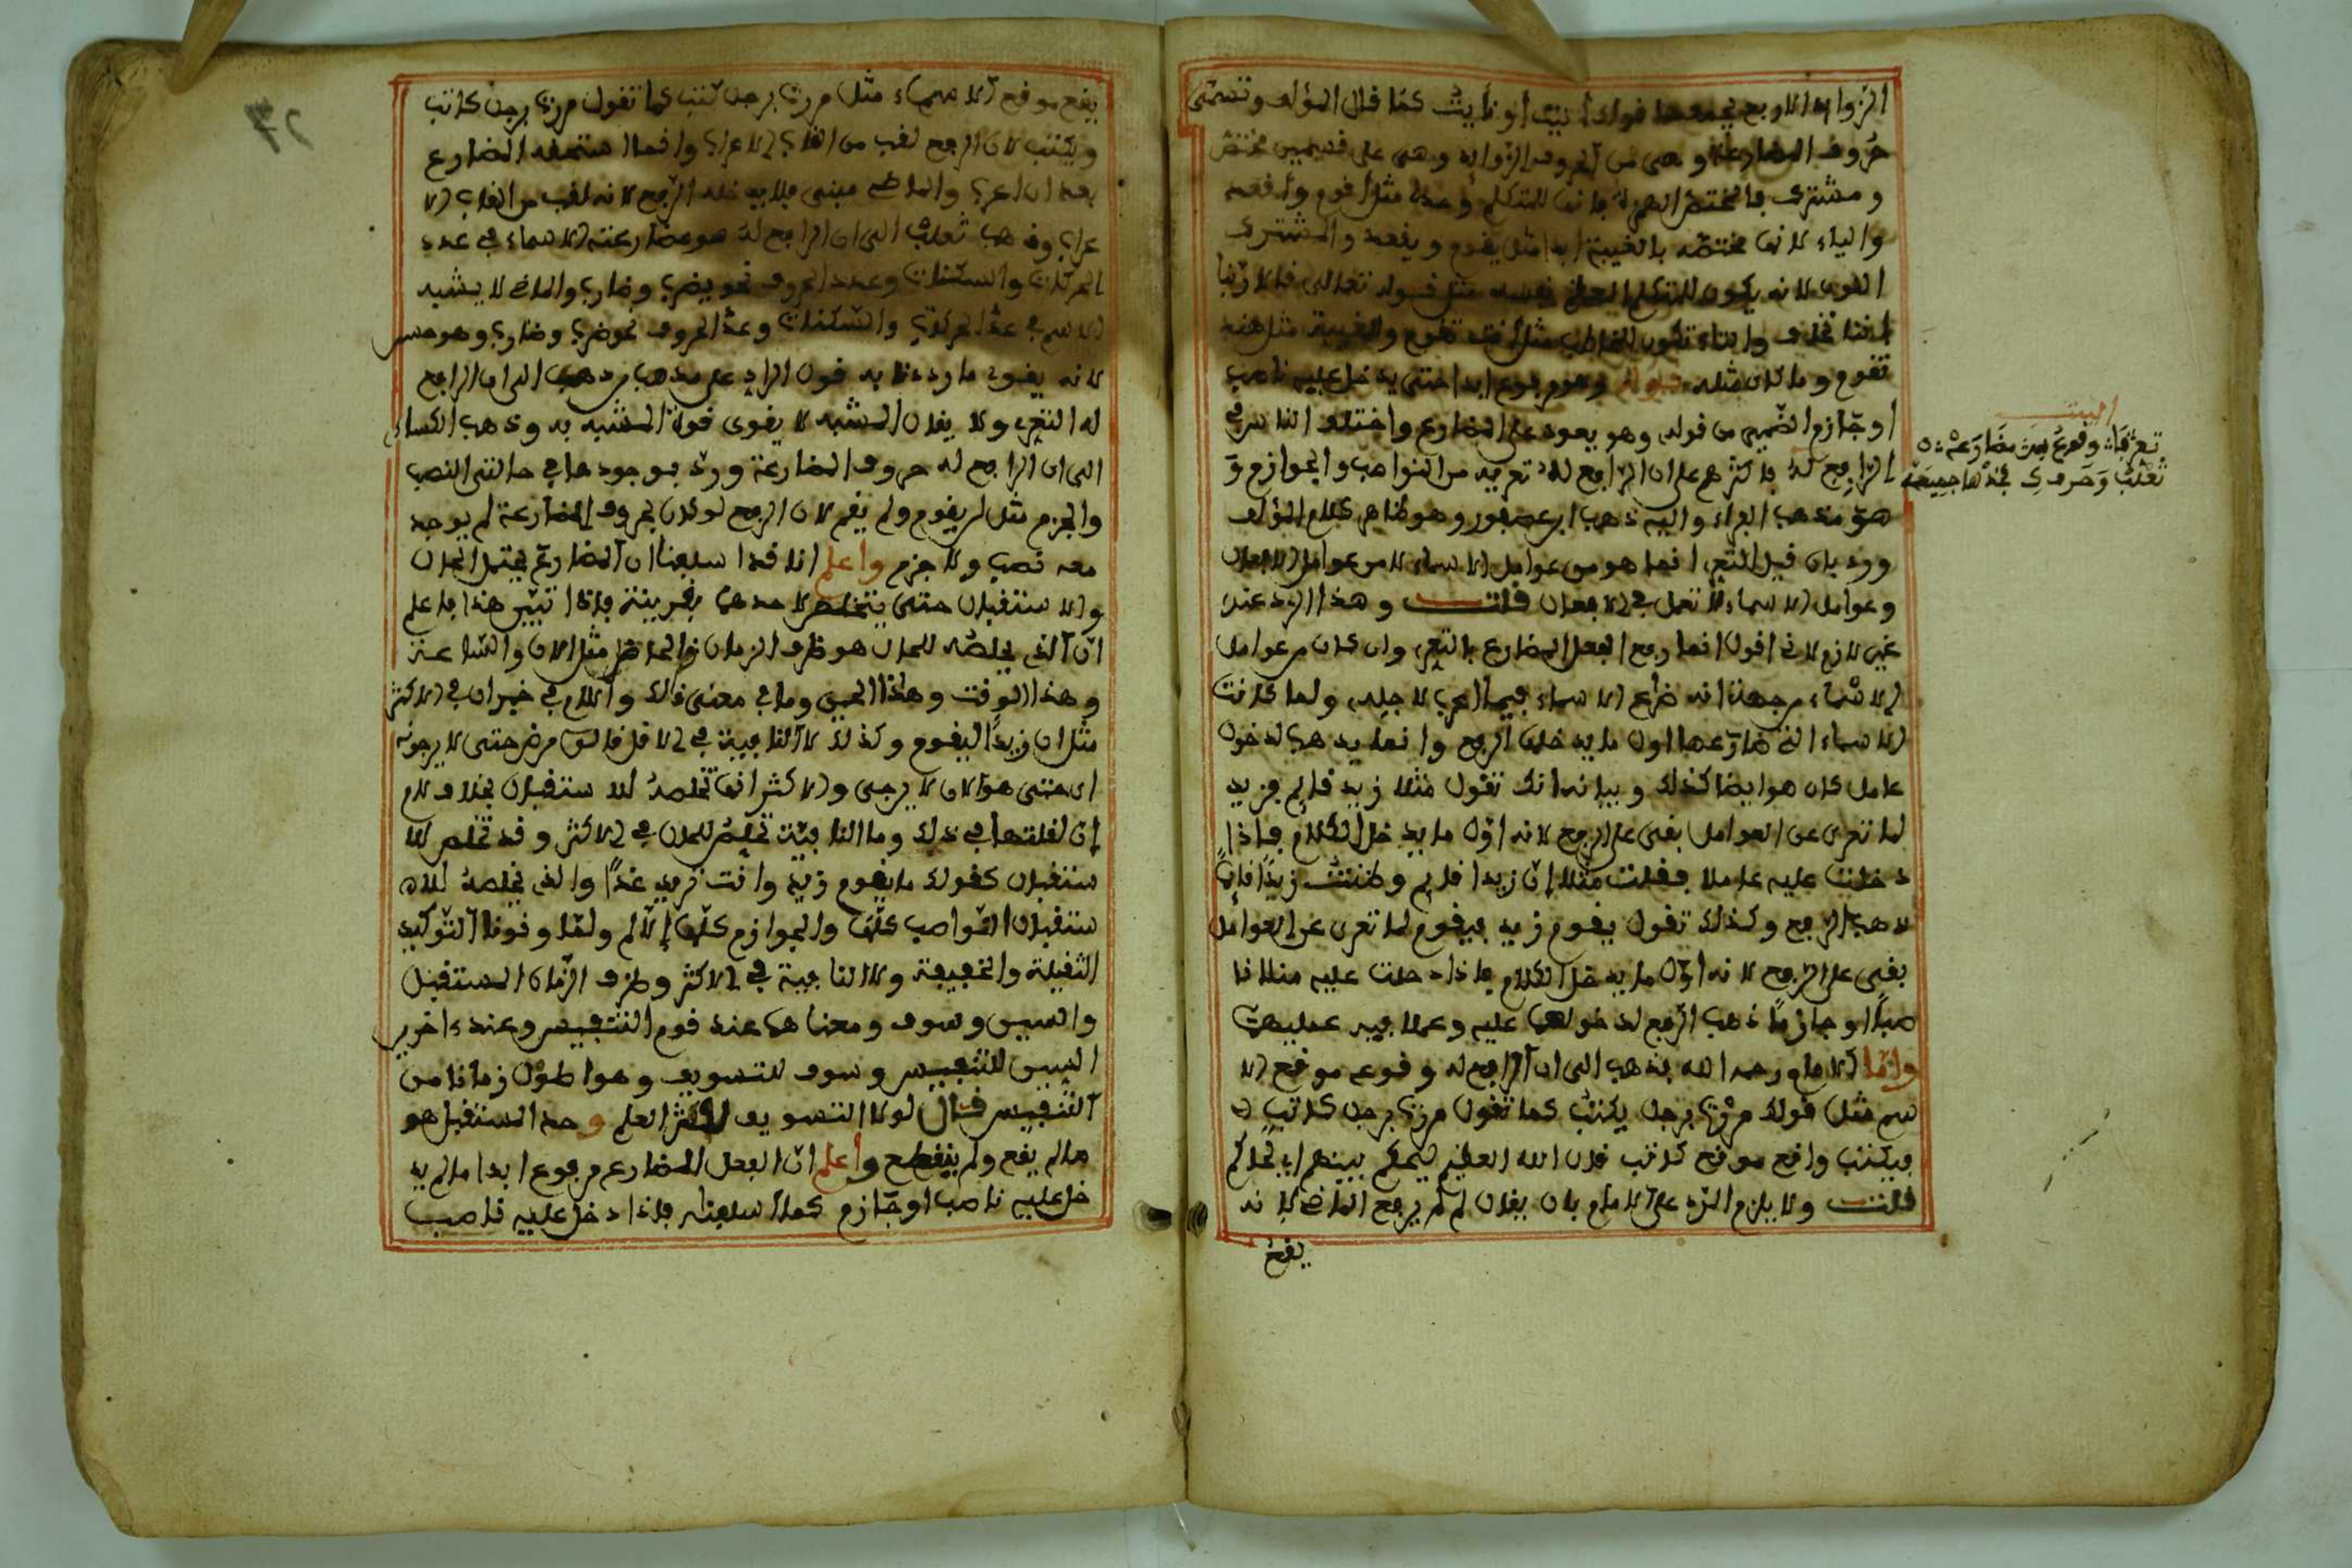 الزوائد الاربع يجمعها قولك أنيت او نأيت كما قال المؤلف وتسمى
حروف المضارعة وهي من الحروف الزوايد وهي على قسمين مختص
ومشترك فالمختص الهمزة فانها للمتكلم وحده مثل اقوم واقعد
والياء لانها مختصة بالغيبة ابدا مثل يقوم ويقعد والمشترك
النون لانه يكون للمتكلم المعظم نفسه مثل قوله تعالى
والتاء تكون للمخاطب مثل انت تقوم والغيبة مثل هند
تقوم وما كان مثله قوله وهو مرفوع ابدا حتى يدخل عليه ناصب
او جازم الضمير من قوله وهو يعود على المضارع واختلف الناس في
الرافع له فاكثرهم على ان الرافع له تعريه من النواصب والجوازم و
هو مذهب الفراء واليه ذهب ابن عصفور وهو ظاهر كلام المؤلف
ورد بان قيل التعري انما هو من عوامل الاسماء لا من عوامل الافعال
وعوامل الاسماء لا تعمل في الافعال قلت وهذا الرد عندي
غير لازم لاني اقول انما رفع الفعل المضارع بالتعري وان كان من عوامل
الاسماء من جهة انه ضارع الاسماء فيما اعرب لاجله ولما كانت
الاسماء التي ضارعها اول ما يدخلها الرفع وانما يذهب لدخول
عامل كان هو ايضا كذلك وبيانه انك تقول مثلا زيد قايم فزيد
لما تعرى عن العوامل بقي على الرفع لانه اول ما يدخل الكلام فاذا
دخلت عليه عاملا فقلت مثلا إن زيدا قايم وظننت زيدا قائما
ذهب الرفع وكذلك تقول يقوم زيد فيقوم لما تعرى عن العوامل
بقي على الرفع لانه اول ما يدخل الكلام فاذا دخلت عليه مثلا نا
صبا او جازما ذهب الرفع لدخولهما عليه وعملا فيه عمليهما
واما الامام رحمه الله فذهب الى ان الرافع له وقوعه موقع الا
سم مثل قولك مررت برجل يكتب كما تقول مررت برجل كاتب
فيكتب واقع موقع كاتب قال الله العظيم ليحكم بينهم اي لحاكم
قلت ولا يلزم الرد على الامام بان يقال لم لم يرفع الماضي لانه
يقع
البيت
تعر فا وقوع بعد مضارعه
ثعلب وحرف خذها جميعه
يقع موقع الاسماء مثل مررت برجل كتب كما تقول مررت برجل كاتب
ويكتب لان الرفع لقب من القاب الاعراب وانما استحقه المضارع
بعد ان اعرب والماضي مبني فلا يدخله الرفع لانه لقب من القاب الا
عراب وذهب ثعلب الى ان الرافع له هو مضارعته الاسماء في عدد
الحركات والسكنات وعدد الحروف نحو يضرب وضارب والماضي لا يشبه
الاسم في عدد الحركات والسكنات وعدد الحروف نحو ضرب وضارب وهو
لانه يقوى ما رددنا به قول الراد على مذهب من ذهب الى ان الرافع
له التعري ولا يقال المشبه لا يقوى قوة المشبه به وذهب الكساءي
الى ان الرافع له حروف المضارعة ورد بوجودها في حالتي النصب
والجزم مثل لن يقوم ولم يقم لان الرفع لو كان بحروف المضارعة لم يوجد
معه نصب ولا جزم واعلم انا قد اسلفنا ان المضارع يحتمل الحال
والاستقبال حتى يتخلص لاحدهما بقرينة فاذا تبين هذا فاعلم
ان الذي يخلصه للحال هو ظرف الزمان الحاضر مثل الان والساعة
وهذا الوقت وهذا الحين وما في معنى ذلك واللام في خبر ان في الاكثر
مثل ان زيدا ليقوم وكذلك لا النافية في الاقل قالوا مرض حتى لا يرجونه
اي حتى هو الان لا يرجى والاكثر انها تخلصه للاستقبال بخلاف لام
إن لقلتها في ذلك وما النافية تخلص للحال في الاكثر وقد تخلص للا
ستقبال كقولك ما يقوم زيد وانت تريد غدا والذي يخلصه للا
ستقبال النواصب كلها والجوازم كلها إلا لم ولما ونونا التوكيد
الثقيلة والخفيفة ولا النافية في الاكثر وظرف الزمان المستقبل
والسين وسوف ومعناهما عند قوم التنفيس وعند ءاخرين
السين للتنفيس وسوف للتسويف وهو اطول زمانا من
التنفيس قال لولا التسويف لكثر العلم وحد المستقبل هو
ما لم يقع ولم ينقطع واعلم ان الفعل المضارع مرفوع ابدا ما لم يد
خل عليه ناصب او جازم كما اسلفنا فاذا دخل عليه ناصب
27